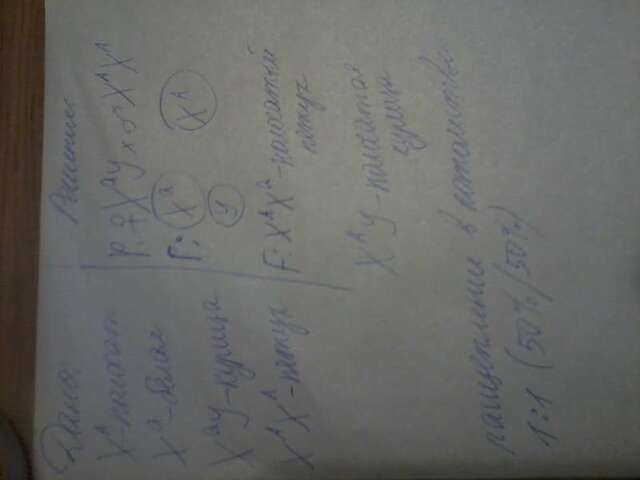 Дано:
X^A - полосат
X^a - белая
X^a y - курица
X^A X^A - петух
Решение:
P: ♀ X^a y × ♂ X^A X^A
Г: X^a X^A
y
F: X^A X^a - полосатый
петух
X^A y - полосатая
курица
расщепление в потомстве
1:1 (50%/50%)